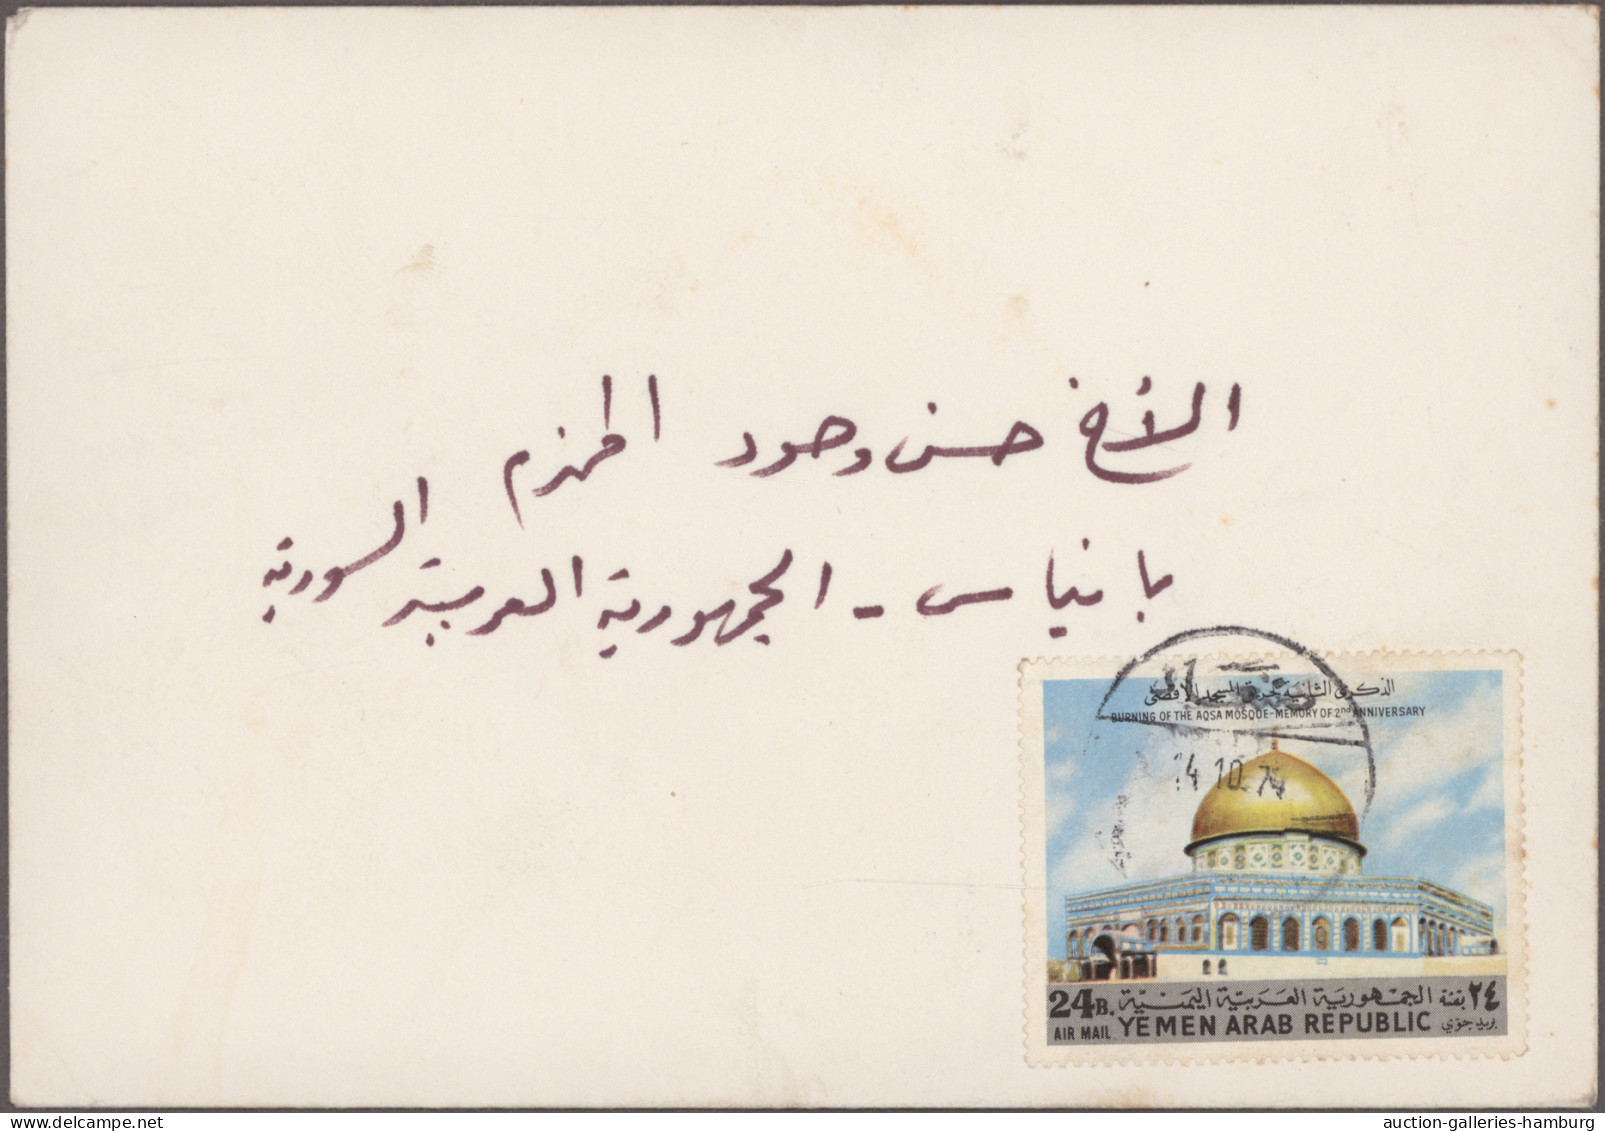 الأخ حسن وحود
بانياس - الجمهورية العربية السورية
الذكرى الثانية لحريق المسجد الأقصى
BURNING OF THE AQSA MOSQUE-MEMORY OF 2nd ANNIVERSARY
14 10 74
24B. الجمهورية العربية اليمنية ٢٤ بقشة
AIR MAIL YEMEN ARAB REPUBLIC بريد جوي
auction-galleries-hamburg